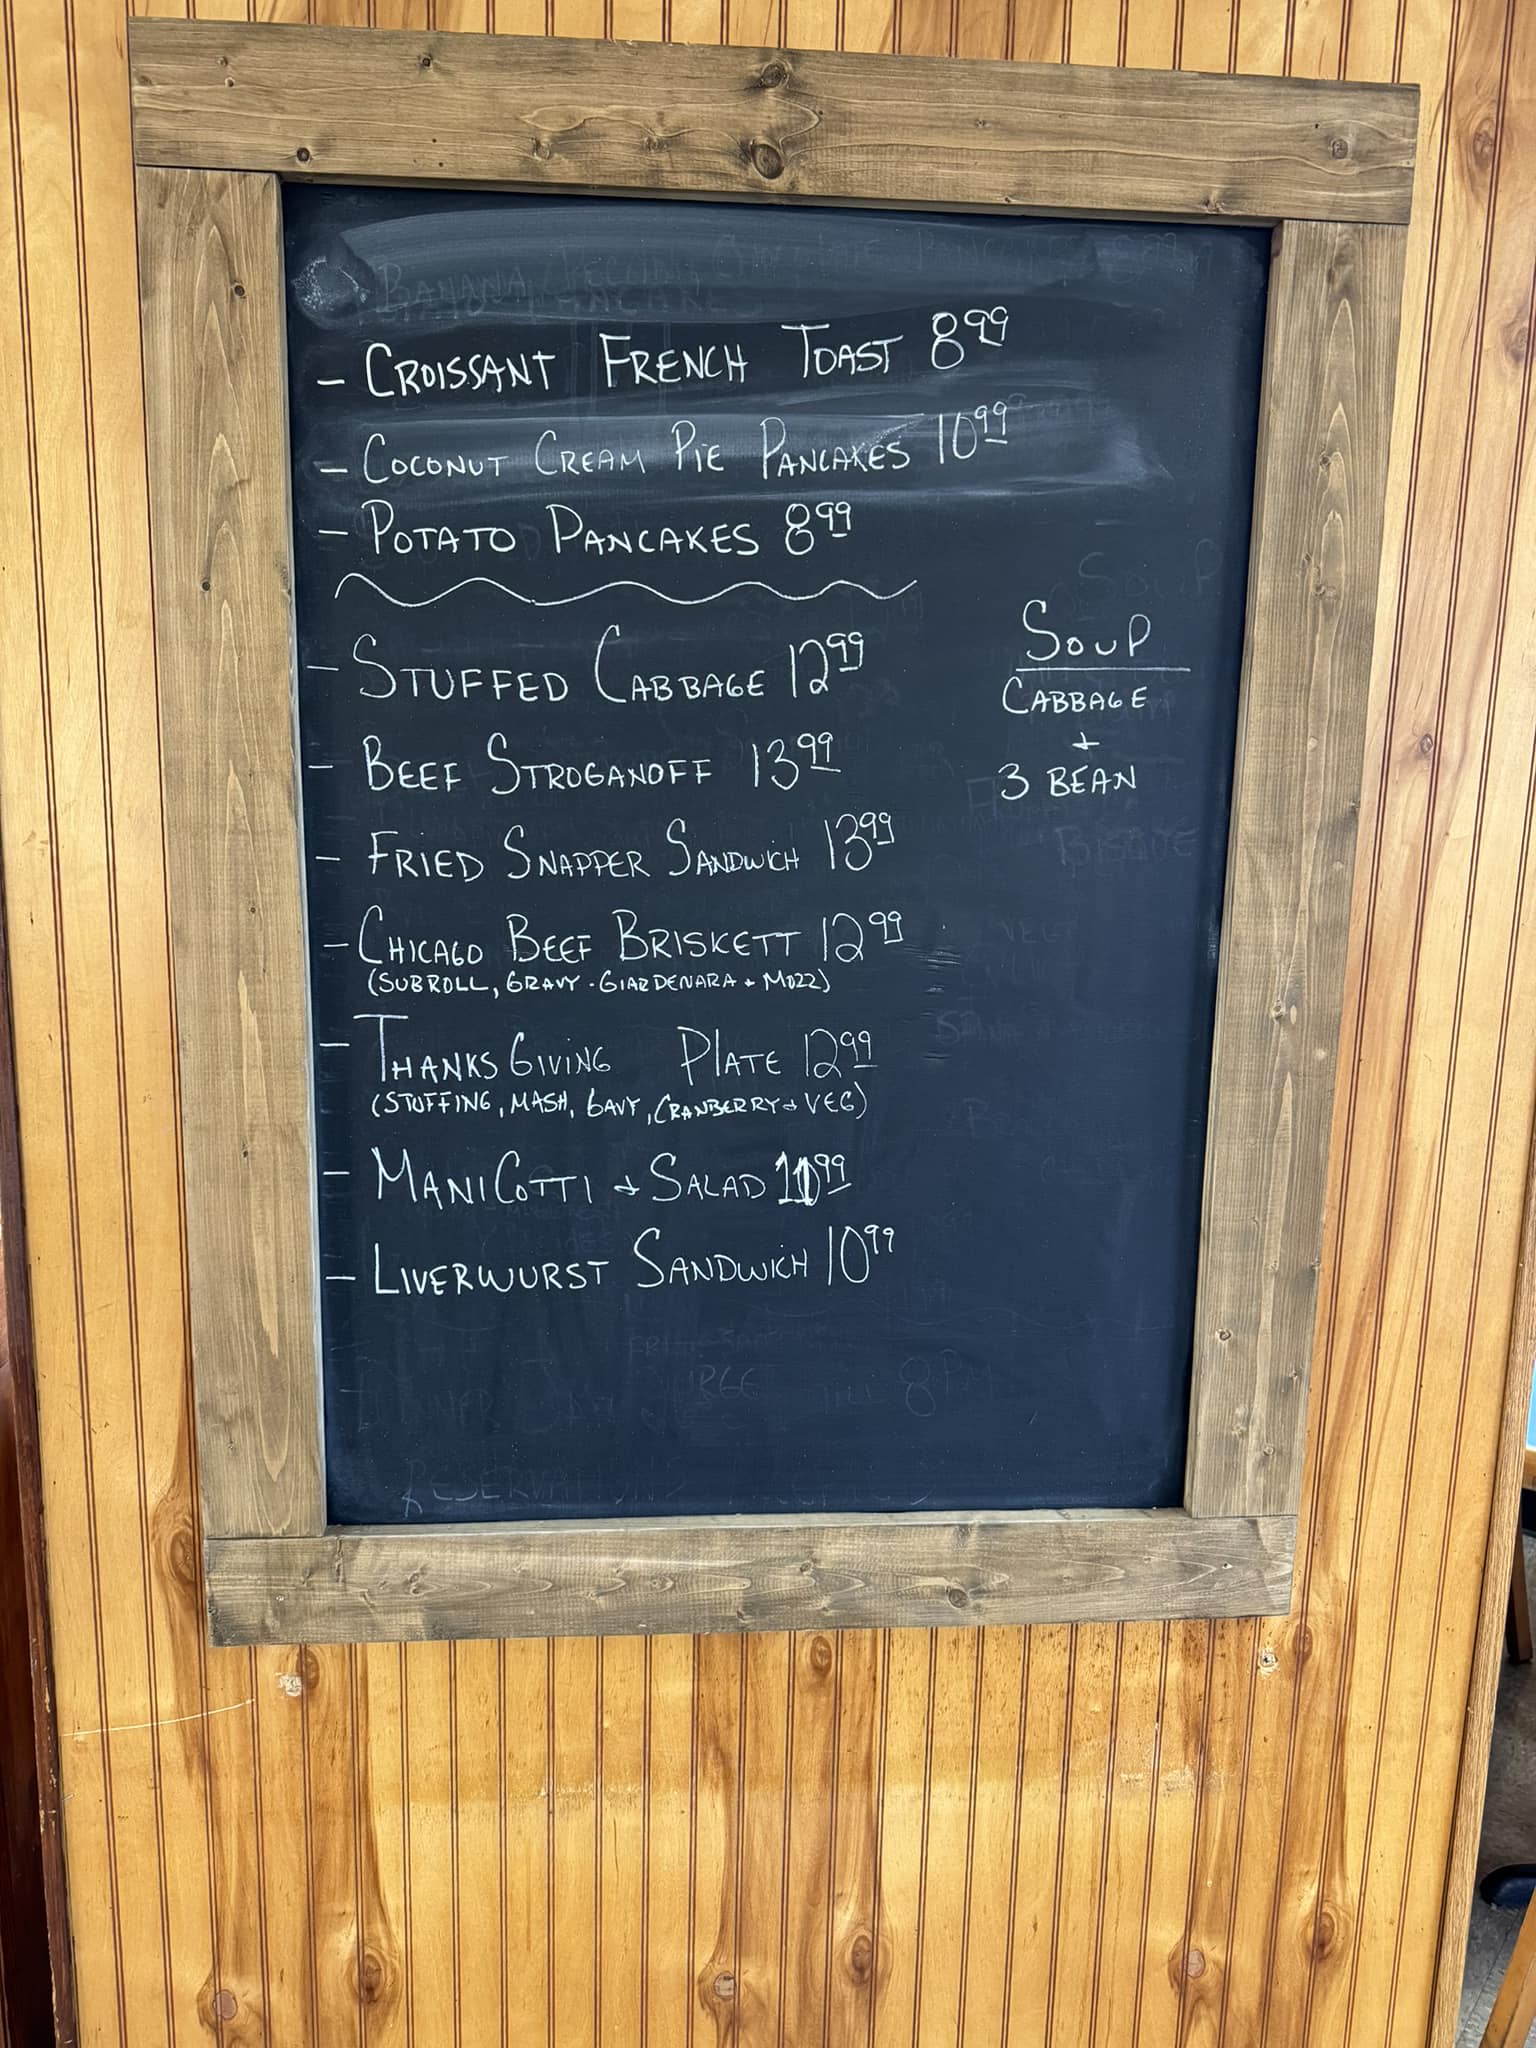 - CROISSANT FRENCH TOAST 8.99
- COCONUT CREAM PIE PANCAKES 10.99
- POTATO PANCAKES 8.99
- STUFFED CABBAGE 12.99
- BEEF STROGANOFF 13.99
- FRIED SNAPPER SANDWICH 13.99
- CHICAGO BEEF BRISKETT 12.99
(SUBROLL, GRAVY - GIARDENARA + MOZZ)
- THANKS GIVING PLATE 12.99
(STUFFING, MASH, GAVY, CRANBERRY + VEG)
- MANICOTTI + SALAD 11.99
- LIVERWURST SANDWICH 10.99
SOUP
CABBAGE
+
3 BEAN